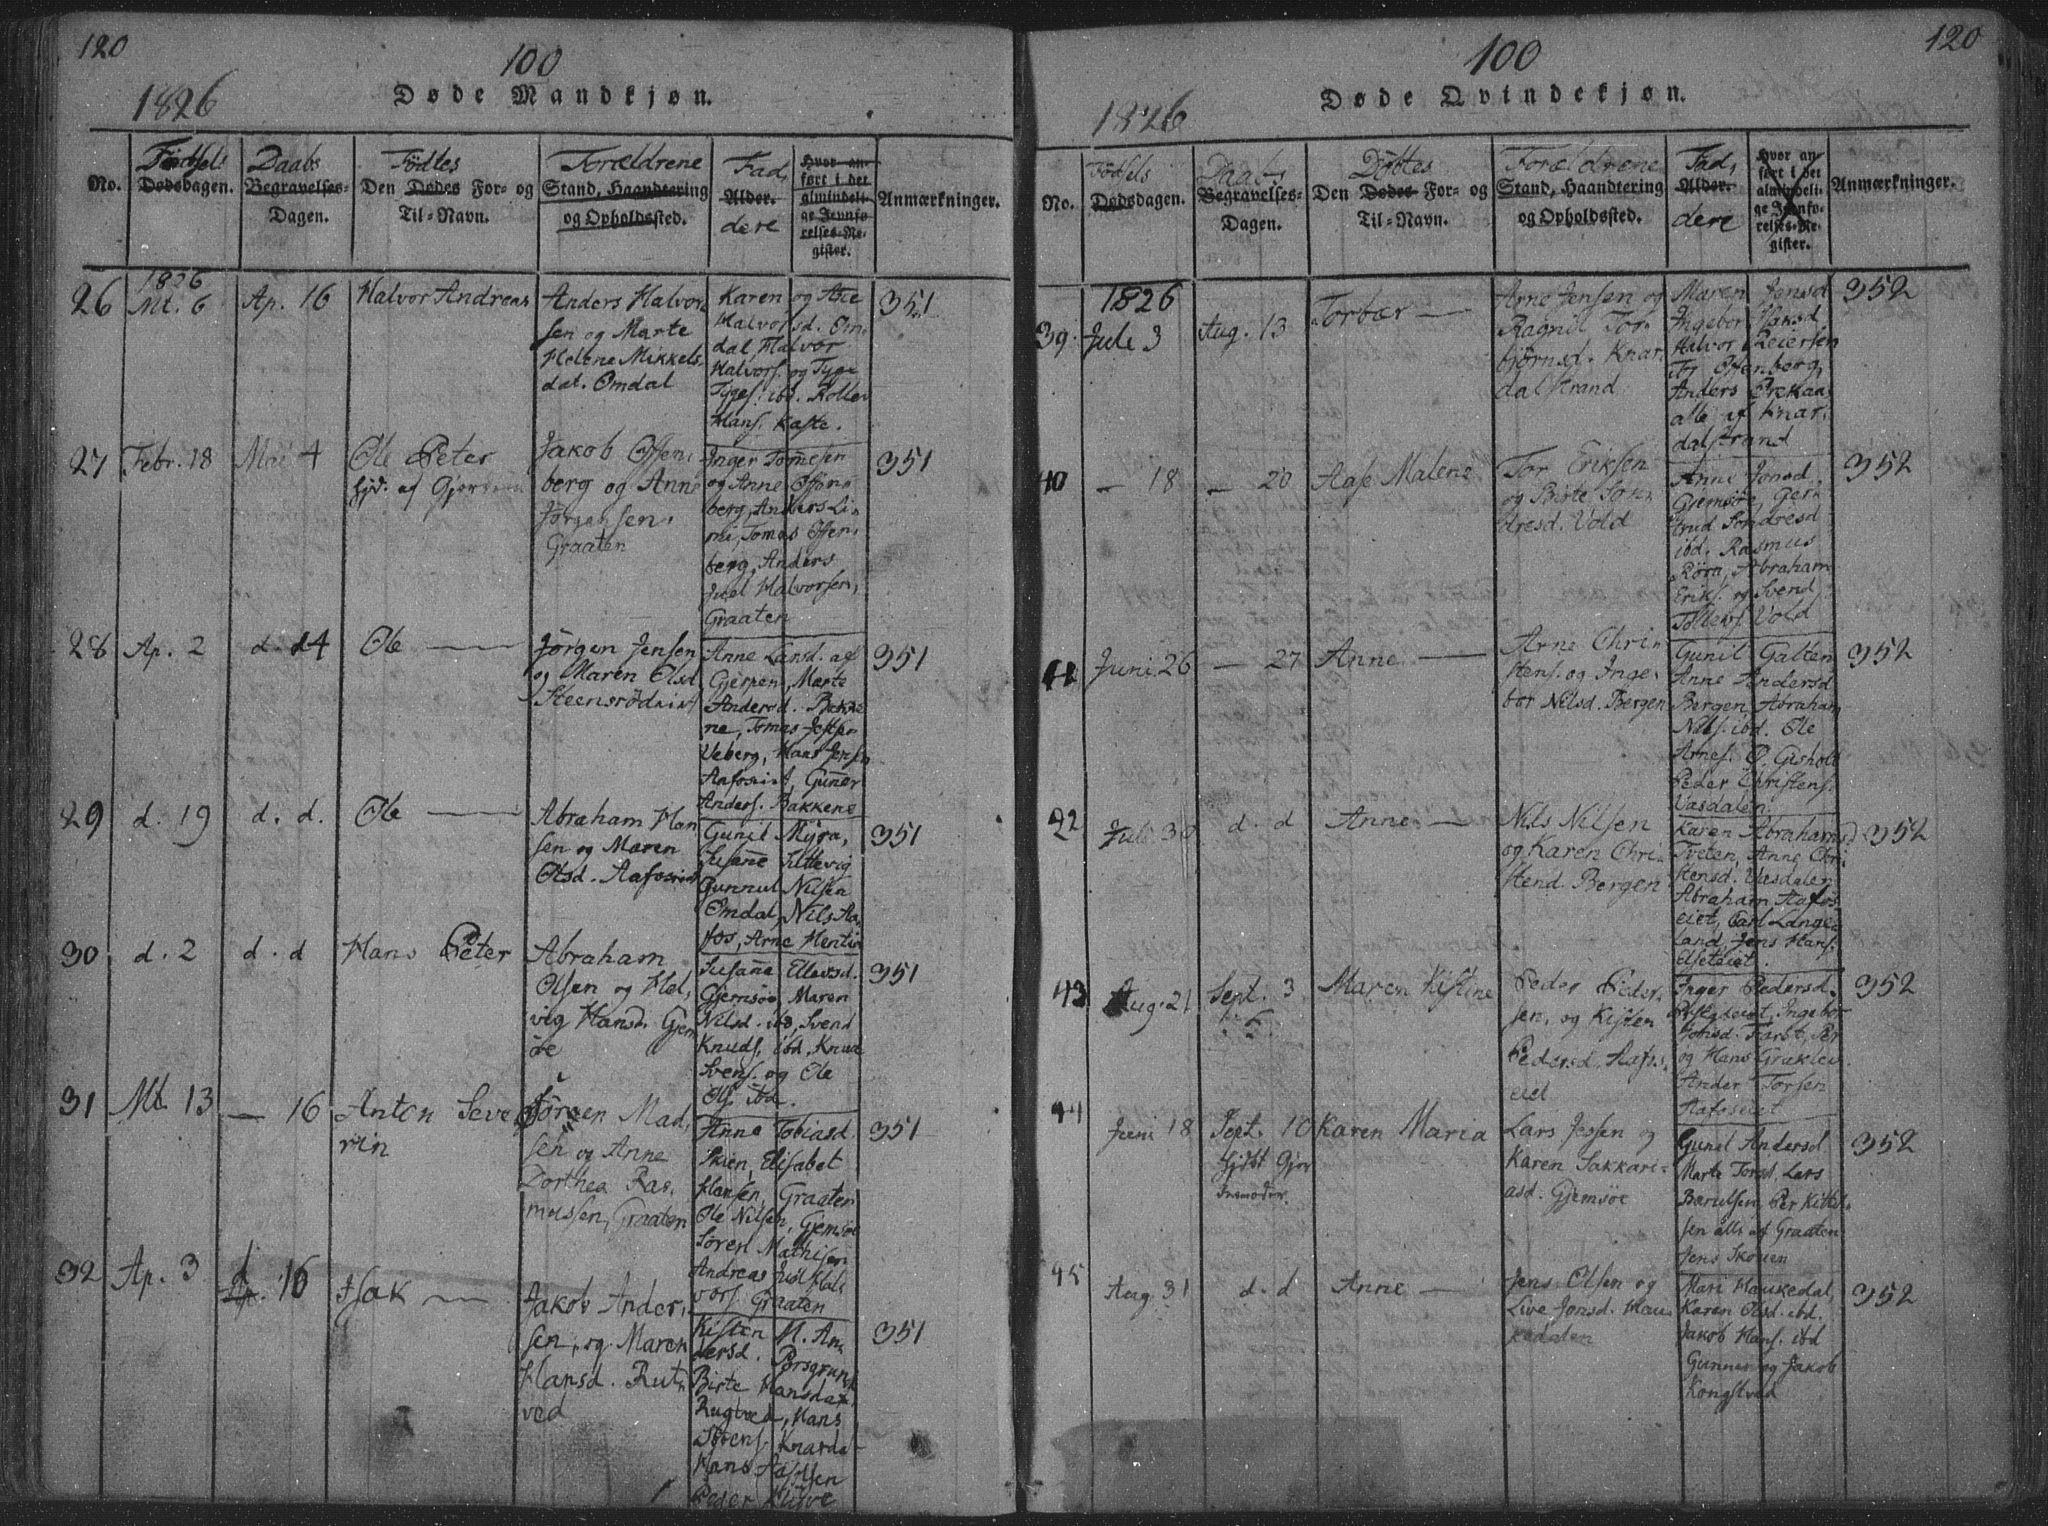 120
100
1826
Døde Mandkjøn.
No.
Födsels
Dødsdagen.
Daabs
Begravelses-
Dagen.
Födtes
Den Dødes For- og
Til-Navn.
Forældrene
Stand, Haandtering
og Opholdssted.
Fad,
Alder.
dere
Hvor an-
ført i det
almindeli-
ge Jevnfø-
relses-Re-
gister.
Anmærkninger.
1826
26 Mt. 6 Ap. 16 Halvor Andreas
Anders Halvor
sen og Marte
Helene Mikkels
dat. Omdal
Karen og Ase
Halvorsd. Om
dal, Halvor
Halvors. og Tyge
Tyges. ibd. Rollev
Hans. Kaste.
351
27 Febr. 18 Mai 4 Ole Peter
hjd. af
Jakob Offen
berg og Anne
Jørgensen
Graaten
Inger Tomesen
og Anne Offen
berg, Anders Li-
mi, Tomas Offen
berg, Anders
Juel Halvorsen,
Graaten
351
28 Ap. 2 d. d4 Ole —
Jørgen Jensen
og Maren Olsd
Steensrödeiet
Anne Larsd. af
Gjerpen, Marte
Andersd. Bakke
ne, Tomas Jesser
Ueberg, Hans Jensen
Aafoseiet, Gunner
Anders. Bakkene
351
29 d. 19 d. d. Ole —
Abraham Han
sen og Maren
Olsd. Aafoseiet
Gunil Myra,
Susanne Siltevig
Gunnul Nilsen
Omdal, Nils Aa
fos, Arne Hentie
351
30 d. 2 d. d Hans Peter
Abraham
Olsen og Hel,
vig Hansd. Gjem
øe
Susanne Ellevsd.
Gjemsöe, Maren
Nilsd. ibd, Svend
Knuds, ibd, Knud
Svens. og Ole
Ols. ibd.
351
31 Mt. 13 — 16 Anton Seve
rin
Jörgen Mad,
sen og Anne
Dorthea Ras,
mussen, Graaten
Anne Tobiasd.
Skien, Elisabet
Hansen, Graaten
Ole Nilsen, Gjemsöe
Søren Mathisen
Andreas Juel Hal
vors. Graaten
351
32 Ap. 3 d 16 Isak —
Jakob Ander,
sen, og Maren
Hansd. Rut
ved
Kisten M. An
dersd. Porsgrund
Birte Hansdat,
Rugtved, Hans
Sörens. Knardal
Hans
Peder Klitve
351
120
100
1826
Døde Qvindekjøn.
No.
Födsels
Dødsdagen.
Daabs
Begravelses-
Dagen.
Døbtes
Den Dødes For- og
Til-Navn.
Forældrene
Stand, Haandtering
og Opholdssted.
Fad,
Alder.
dere
Hvor an-
ført i det
almindeli-
ge Jevnfø-
relses-Re-
gister.
Anmærkninger.
1826
39 Juli 3 Aug. 13 Torbær —
Arne Jensen og
Ragnil Tor
björnsd. Knar,
dalstrand
Maren Jensd
Ingebor Isaksd
Halvor Reiersen
Offenberg,
Anders
alle af Knar,
dalstrand
352
40 — 18 — 20 Aase Malene
Tor Eriksen
og Birte Son,
dresd. Vold
Anne Jonsd.
Gjemsøe, Ger
trud Sondresd
ibd. Rasmus
Röra, Abraham
Eriks. og Svend
Tollevs Vold
352
41 Juni 26 — 27 Anne —
Arne Chri
stens. og Inge
bor Nilsd. Bergen
Gunil Galten
Anne Andersd
Bergen Abraham
Nils. ibd. Ole
Arnes. O. Gisholt
Peder Christens.
Vasdalen
352
42 Juli 30 d. d Anne —
Nils Nilsen
og Karen Chri
stend. Bergen
Karen Abrahamsd
Tveten, Anne Chri
stensd. Vasdalen
Abraham Aafos
eiet, Carl Lange
land, Jens Hans.
352
43 Aug. 21 Sept. 3 Maren Kistine
Peder Peder,
sen, og Kisten
Pedersd. Aafos
eiet
Inger Pedersd.
Ingebor
Jonsd. Farst, Per
og Hans Graklev
Ander Torsen
Aafoseiet
352
44 Juni 18 Sept. 10 Karen Maria
hjdbt Gjor
Lars Jessen og
Karen Sakkari
asd. Gjemsöe
Gunil Andersd
Marte Torsd. Lars
Barulsen, Per Kittel
sen alle af Graaten
Jens Skouen
352
45 Aug. 31 d. d Anne —
Jens Olsen og
Live Jonsd. Hau
kedalen
Mari Haukedal,
Karen Olsd. ibd.
Jakob Hans. ibd
Gunner og Jakob
Kongstved
352